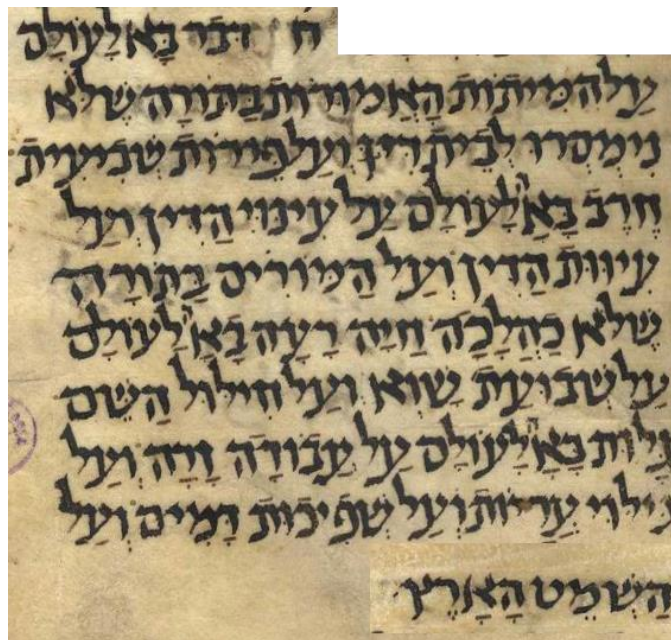 ח דבר בָּא לָעוֹלָם
עַל הַמִּיתוֹת הָאֲמוּרוֹת בַּתּוֹרָה שֶׁלֹּא
נִימְסְרוּ לְבֵית דִּין וְעַל פֵּירוֹת שְׁבִיעִית
חֶרֶב בָּאָה לָעוֹלָם עַל עִינּוּי הַדִּין וְעַל
עִיוּוּת הַדִּין וְעַל הַמּוֹרִים בַּתּוֹרָה
שֶׁלֹּא כַהֲלָכָה חַיָּה רָעָה בָּאָה לָעוֹלָם
עַל שְׁבוּעַת שָׁוְא וְעַל חִילּוּל הַשֵּׁם
גָּלוּת בָּאָה לָעוֹלָם עַל עֲבוֹדָה זָרָה וְעַל
גִּילּוּי עֲרָיוֹת וְעַל שְׁפִיכוּת דָּמִים וְעַל
הַשְׁמֵט הָאָרֶץ